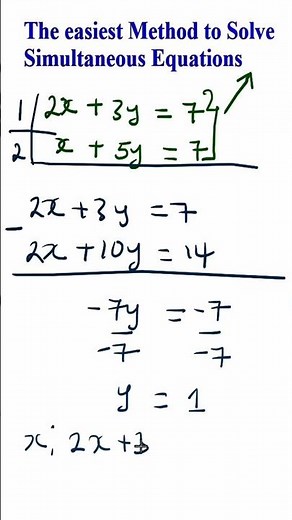 The easiest Method to Solve
Simultaneous Equations
1 2x + 3y = 7
2 x + 5y = 7
- 2x + 3y = 7
2x + 10y = 14
-7y = -7
-7 -7
y = 1
x; 2x + 3